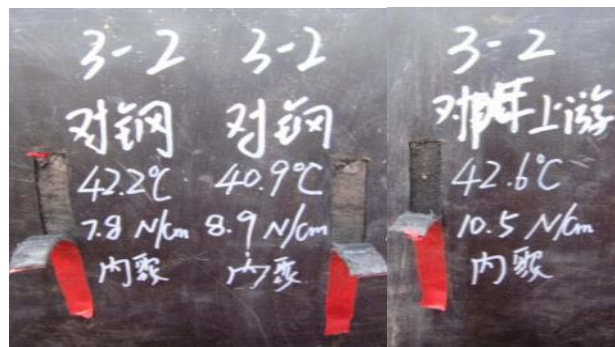 3-2
对钢
42.2℃
7.8 N/cm
内聚
3-2
对钢
40.9℃
8.9 N/cm
内聚
3-2
对 上游
42.6℃
10.5 N/cm
内聚